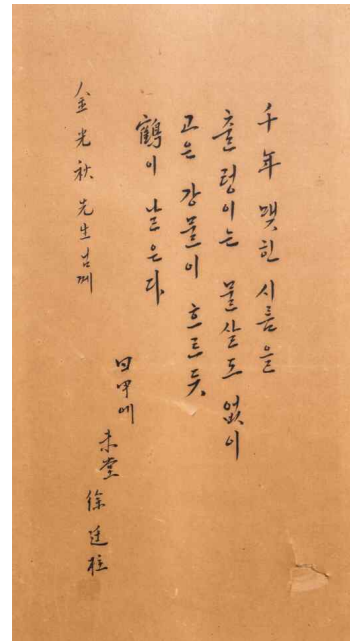 千年 맺힌 시름을
출렁이는 물살도 없이
고은 강물이 흐르듯
鶴이 날은다.
回甲에 未堂 徐廷柱
金光秋 先生님께